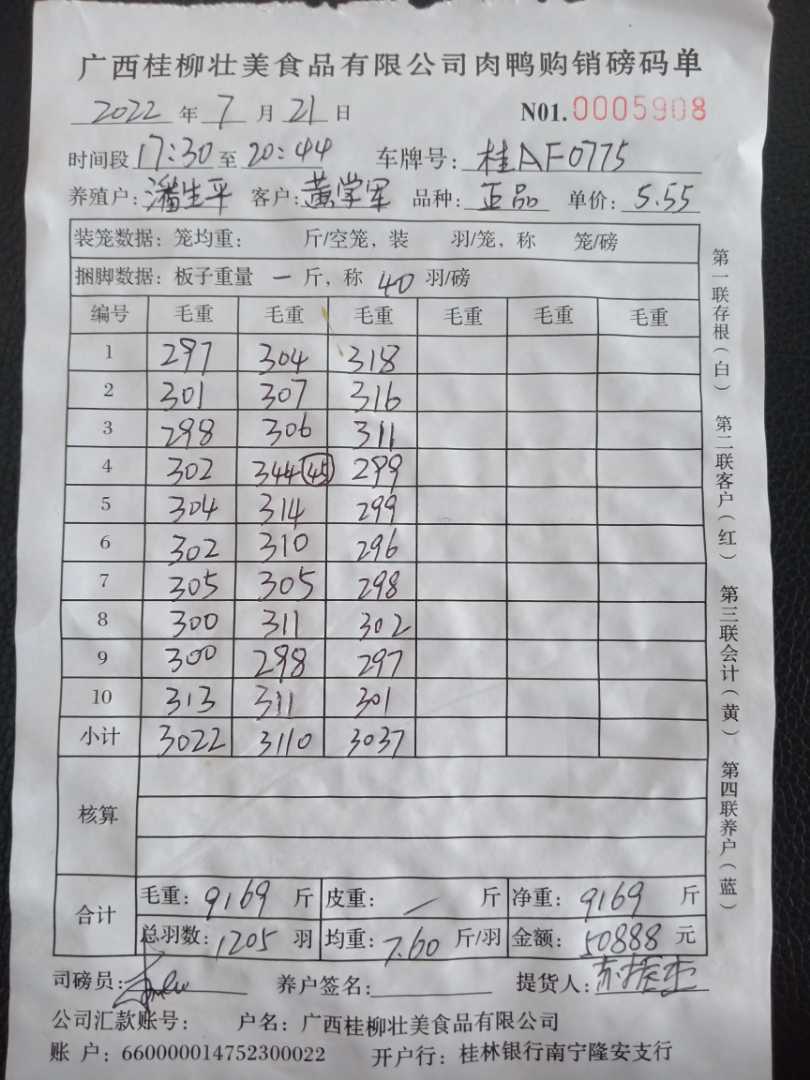 广西桂柳壮美食品有限公司肉鸭购销磅码单
2022 年 7 月 21 日 N01.0005908
时间段 17:30 至 20:44 车牌号: 桂AF0775
养殖户: 潘生平 客户: 黄学军 品种: 正品 单价: 5.55
装笼数据: 笼均重: 斤/空笼, 装 羽/笼, 称 笼/磅
捆脚数据: 板子重量 一 斤, 称 40 羽/磅
编号 毛重 毛重 毛重 毛重 毛重 毛重
1 297 304 318
2 301 307 316
3 298 306 311
4 302 344 45 299
5 304 314 299
6 302 310 296
7 305 305 298
8 300 311 302
9 300 298 297
10 313 311 301
小计 3022 3110 3037
核算
合计
毛重: 9169 斤 皮重: 一 斤 净重: 9169 斤
总羽数: 1205 羽 均重: 7.60 斤/羽 金额: 50888 元
司磅员: 养户签名: 提货人:
公司汇款账号: 户名: 广西桂柳壮美食品有限公司
账 户: 660000014752300022 开户行: 桂林银行南宁隆安支行
第一联存根(白) 第二联客户(红) 第三联会计(黄) 第四联养户(蓝)